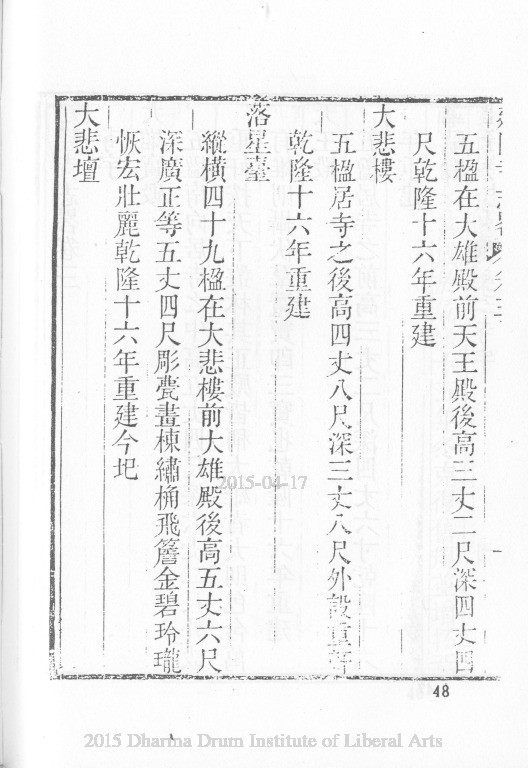 五楹在大雄殿前天王殿後高三丈二尺深四丈四
尺乾隆十六年重建
大悲樓
五楹居寺之後高四丈八尺深三丈八尺外設重
乾隆十六年重建
落星臺
縱橫四十九楹在大悲樓前大雄殿後高五丈六尺
深廣正等五丈四尺彫甍畫棟繡桷飛簷金碧玲瓏
恢宏壯麗乾隆十六年重建今圮
大悲壇
48
2015-04-17
2015 Dharma Drum Institute of Liberal Arts